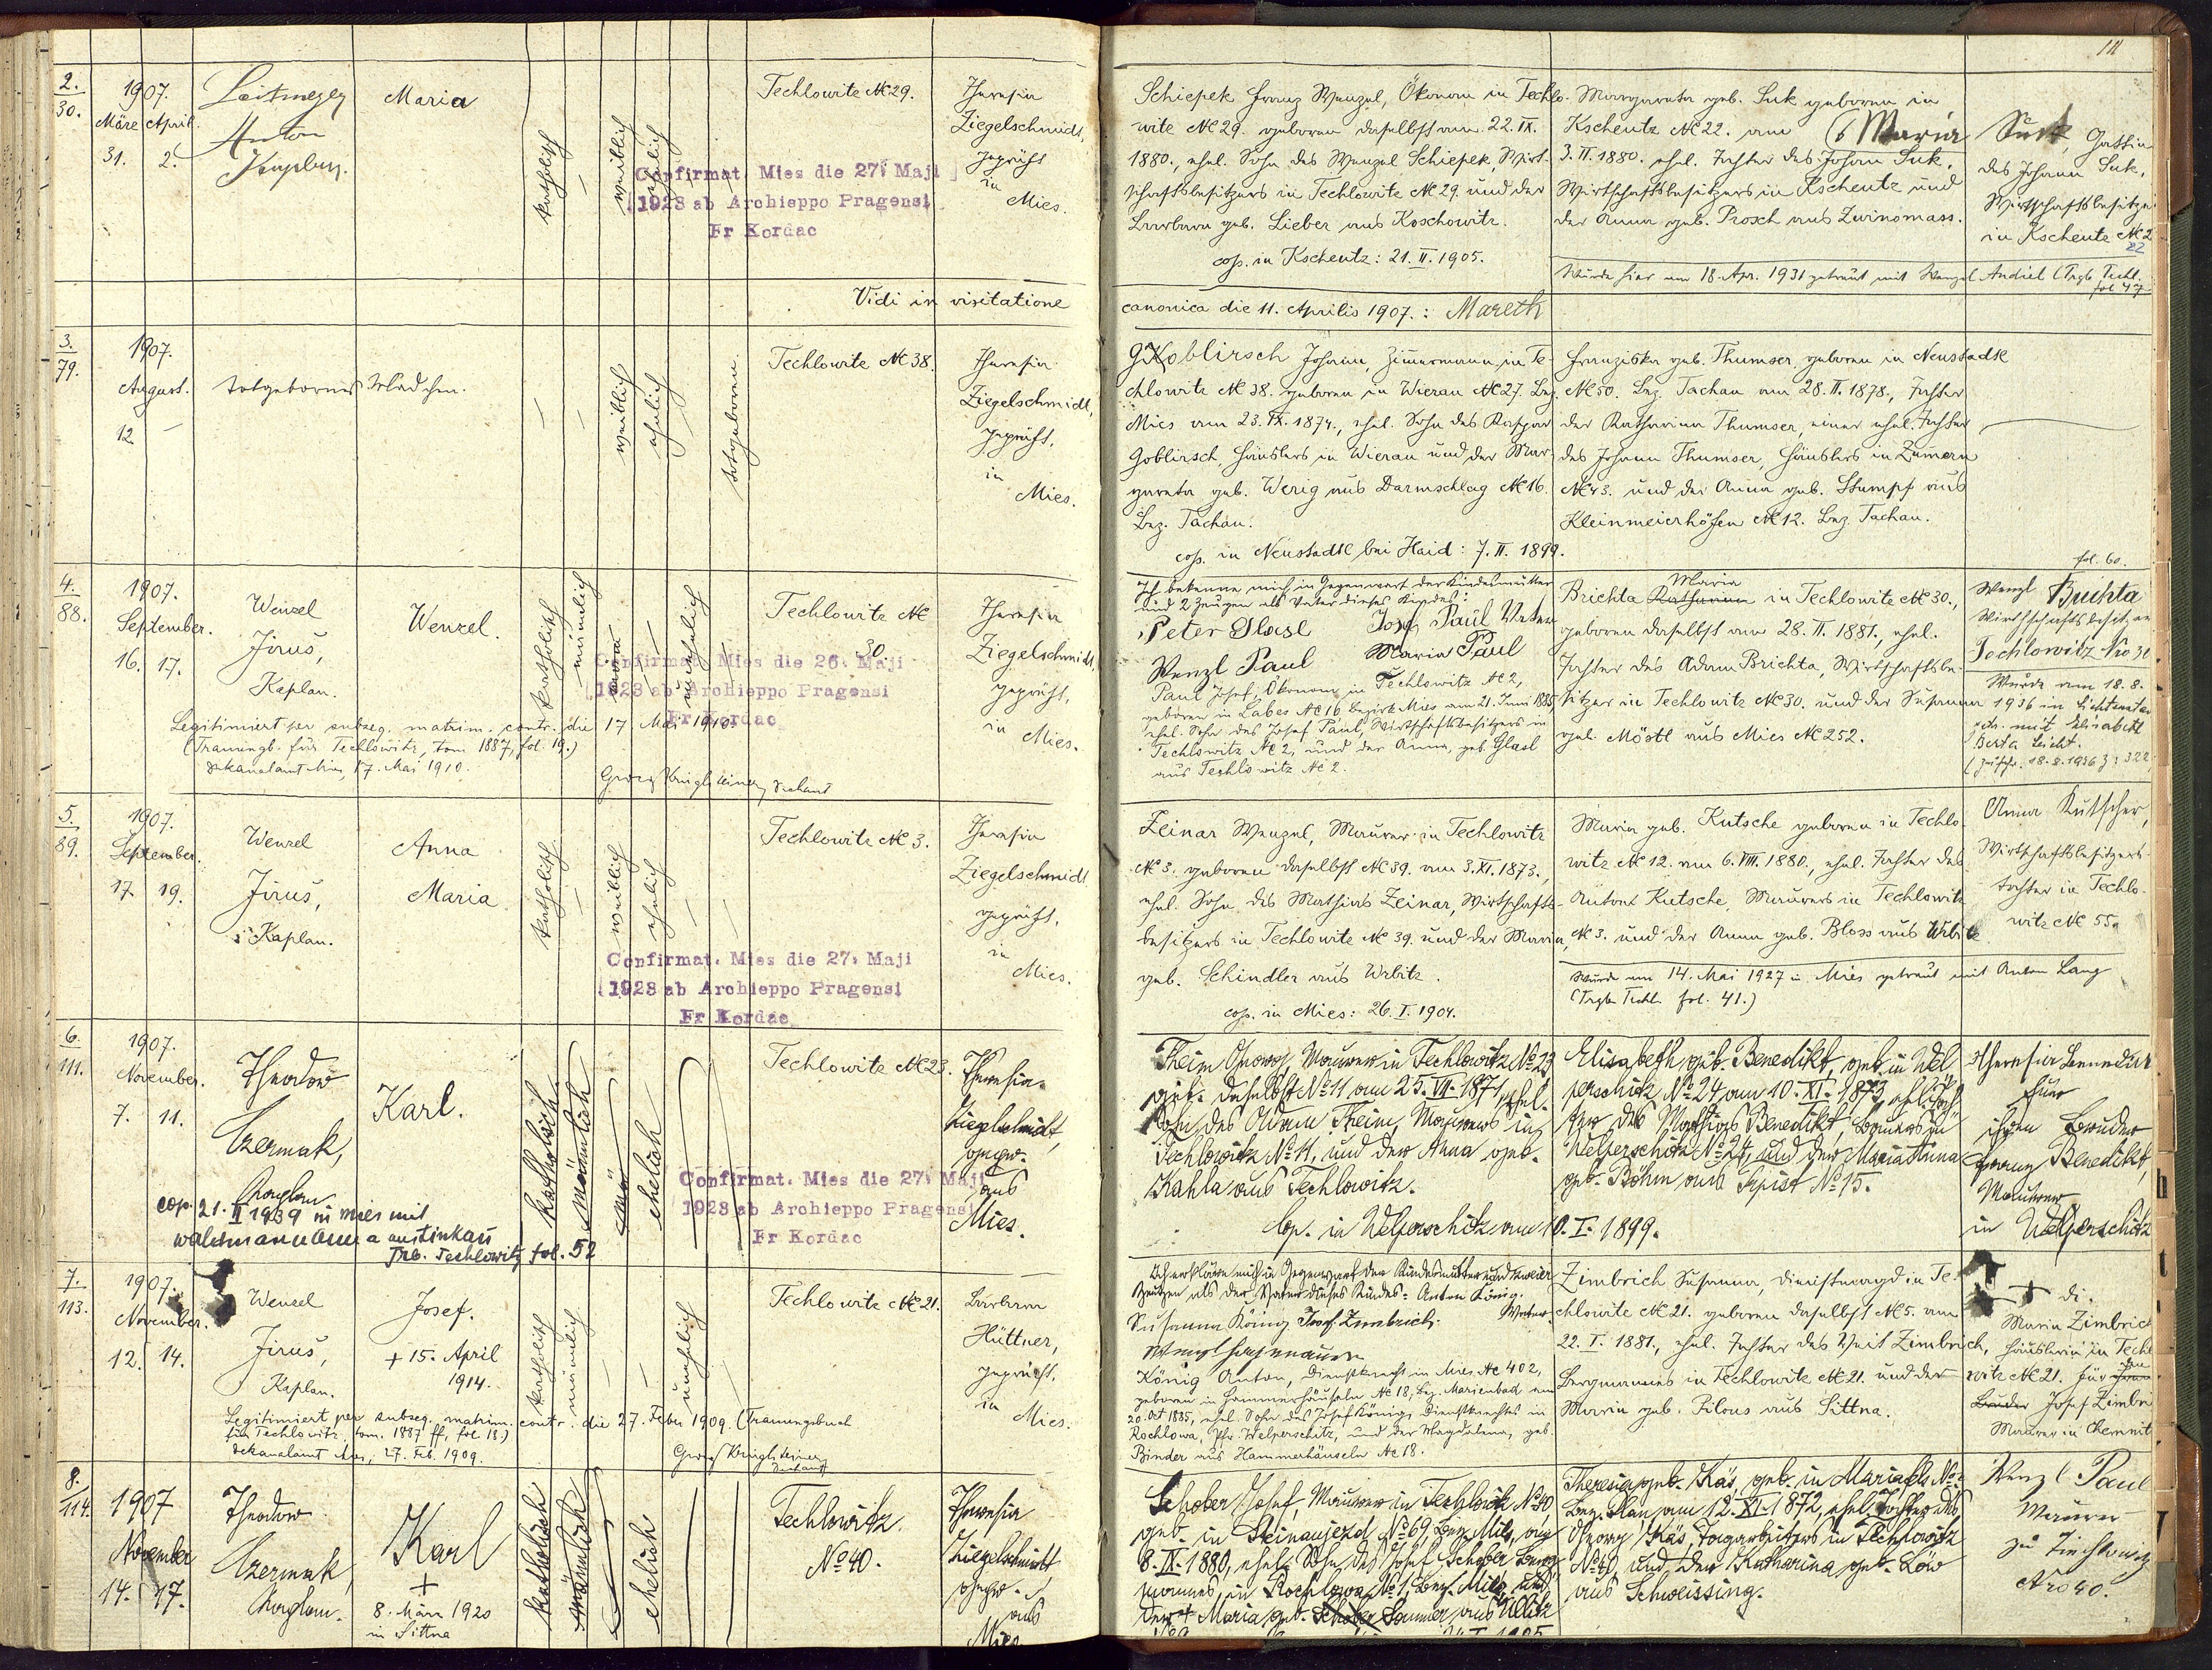 2.
30.
1907.
März April.
31. 2.
Anton
Maria
katholisch
weiblich
ehelich
Techlowitz № 29.
Theresia
Ziegelschmidt,
geprüft
in
Mies.
Confirmat. Mies die 27. Maji
1928 ab Archieppo Pragensi
Fr Kordac
Schiepek Franz Wenzel, Ökonom in Techlo-
witz № 29. geboren daselbst am 22. IX.
1880., ehel. Sohn des Wenzel Schiepek, Wirt-
schaftsbesitzers in Techlowitz № 29. und der
Barbara geb. Lieber aus Koschowitz.
cop. in Kscheutz: 21. II. 1905.
Margareta geb. Suk geboren in
Kscheutz № 22. am
3. II. 1880. ehel. Tochter des Johann Suk,
Wirtschaftsbesitzers in Kscheutz und
der Anna geb. Prosch aus Zwinomass.
Maria Suk, Gattin
des Johann Suk,
Wirtschaftsbesitzer
in Kscheutz № 2
22
Wurde hier am 18. Apr. 1931 getraut mit Wenzel Andiel (Trgb. Techl.
fol 47
111
Vidi in visitatione
canonica die 11. Aprilis 1907.: Mareth
3.
79.
1907.
August.
12. –
totgebornes Mädchen.
weiblich
ehelich
totgeboren
Techlowitz № 38.
Theresia
Ziegelschmidt,
geprüft,
in
Mies.
Goblirsch Johann, Zimmermann in Te-
chlowitz № 38. geboren in Wierau № 27. Bez.
Mies am 23. IX. 1874., ehel. Sohn des Kaspar
Goblirsch, Häuslers in Wierau und der Mar-
gareta geb. Werig aus Darmschlag № 16.
Bez. Tachau.
cop. in Neustadtl bei Haid: 7. II. 1899.
Franziska geb. Thumser, geboren in Neustadtl
№ 50. Bez. Tachau am 28. II. 1878., Tochter
der Katharina Thumser, einer ehel. Tochter
des Johann Thumser, Häuslers in Zumern
№ 43. und der Anna geb. Stumpf aus
Kleinmeierhöfen № 12. Bez. Tachau.
4.
88.
1907.
September.
16. 17.
Wenzel
Jirus,
Kaplan.
Wenzel.
katholisch
männlich
unehelich
Techlowitz №
30.
Theresia
Ziegelschmidt,
geprüft,
in
Mies.
Confirmat. Mies die 26. Maji
1928 ab Archieppo Pragensi
Fr Kordac
Legitimiert per subseq. matrim. contr. die 17 Mai 1910.
(Trauungsb. für Techlowitz, tom 1887, fol. 19.)
Dekanalamt Mies, 17. Mai 1910.
Dechant
Ich bekenne mich in Gegenwart der Kindesmutter
und 2 Zeugen als Vater dieses Kindes:
Peter Glasl Josef Paul Vater
Wenzl Paul Maria Paul
Paul Josef, Ökonom in Techlowitz № 2,
geboren in Labes № 16 Bezirk Mies am 21. Juni 1885,
ehel. Sohn des Josef Paul, Wirtschaftsbesitzers in
Techlowitz № 2, und der Anna, geb. Glasl
aus Techlowitz № 2.
Maria
Brichta Katharina in Techlowitz № 30.,
geboren daselbst am 28. II. 1881., ehel.
Tochter des Adam Brichta, Wirtschaftsbe-
sitzer in Techlowitz № 30. und der Susanna
geb. Möstl aus Mies № 252.
fol. 60.
Wenzl Buchta
Wirthschaftsbesitzer
Techlowitz Nro 30
Wurde am 18. 8.
1936 in
mit Elisabeth
Berta
5.
89.
1907.
September.
17. 19.
Wenzel
Jirus,
Kaplan.
Anna
Maria
katholisch
weiblich
ehelich
Techlowitz № 3.
Theresia
Ziegelschmidt
geprüft,
in
Mies.
Confirmat. Mies die 27. Maji
1928 ab Archieppo Pragensi
Fr Kordac
Zeinar Wenzel, Maurer in Techlowitz
№ 3. geboren daselbst № 39. am 3. XI. 1873.,
ehel. Sohn des Mathias Zeinar, Wirtschafts-
besitzers in Techlowitz № 39. und der Maria,
geb. Schindler aus Wrbitz.
cop. in Mies: 26. I. 1904.
Maria geb. Kutsche geboren in Techlo-
witz № 12. am 6. VIII. 1880., ehel. Tochter des
Anton Kutsche, Maurers in Techlowitz
№ 3. und der Anna geb. Bloss aus Wrbitz
Anna Kutscher,
Wirtschaftsbesitzers-
tochter in Techlo-
witz № 55.
Wurde am 14. Mai 1927 in Mies getraut mit Anton Lang
(Trgb. Techl. fol. 41.)
6.
111.
1907.
November.
7. 11.
Theodor
Czermak,
Kaplan
Karl.
katholisch
männlich
ehelich
Techlowitz № 23.
Theresia
Ziegelschmidt,
gepr.
aus
Mies.
Confirmat. Mies die 27. Maji
1928 ab Archieppo Pragensi
Fr Kordac
cop. 21. II 1939 in Mies mit
Trb. Techlowitz fol. 52
Theim Georg, Maurer in Techlowitz № 23
geb. daselbst № 11 am 25. VII. 1871, ehel.
Sohn des Adam Theim, Maurers in
Techlowitz № 11, und der Anna geb.
Kahla aus Techlowitz.
Cop. in Welperschitz am 10. I. 1899.
Elisabeth geb. Benedikt, geb. in Wel-
perschitz № 24 am 10. XI. 1873, ehel. Toch-
ter des Mathias Benedikt, Bauers in
Welperschitz № 24, und der Maria Anna
geb. Böhm aus № 15.
Theresia Bennedikt
für
ihren Bruder
Franz Benedikt,
Maurer
in Welperschitz
7.
113.
1907.
November.
12. 14.
Wenzel
Jirus,
Kaplan.
Josef.
+ 15. April
1914.
katholisch
männlich
unehelich
Techlowitz № 21.
Barbara
Hüttner,
geprüft,
in
Mies.
Legitimiert per subseq. matrim. contr. die 27. Feber 1909. (Trauungsbuch
für Techlowitz, tom. 1887 ff, fol 18.)
Dekanalamt Mies, 27. Feb. 1909.
Dechant
Ich erkläre mich in Gegenwart der Kindesmutter und zweier
Zeugen als der Vater dieses Kindes: Anton König.
Vater.
Susanna König Josef Zimbrich.
König Anton, Dienstknecht in Mies, № 402,
geboren in Hammerhäuseln № 18, Bez. Marienbad am
20. Okt 1885, ehel. Sohn des Josef König, Dienstknechtes in
Rochlowa, Pfr. Welperschitz, und der Magdalena, geb.
Binder aus Hammerhäuseln № 18.
Zimbrich Susanna, Dienstmagd in Te-
chlowitz № 21. geboren daselbst № 5. am
22. I. 1881., ehel. Tochter des Veit Zimbrich,
Bergmannes in Techlowitz № 21. und der
Maria geb. Pilous aus Sittna.
Maria Zimbrich
Häuslerin in Techlo
witz № 21. für
Bruder Josef Zimbri
Maurer in Chemnit
8.
114.
1907
November
14. 17.
Theodor
Czermak,
Kaplan.
Karl
+
8. März 1920
in Sittna
katholisch
männlich
ehelich
Techlowitz.
№ 40.
Theresia
Ziegelschmidt,
gepr.
aus
Mies
Schober Josef, Maurer in Techlowitz № 40,
geb. in № 69, Bez. Mies, am
8. IX. 1880, ehel. Sohn des Josef Schober, Berg-
mannes, in Rochlowa № 1, Bez. Mies, und
der + Maria geb. Schober Sommer aus Ullitz
Theresia geb. Käs, geb. in
Bez. Plan am 12. XI. 1872, ehel. Tochter des
Georg Käs, in Techlowitz
№ 40 und der Katharina geb. Löw
aus Schweissing.
Wenzl Paul
Maurer
zu
Nro 40.